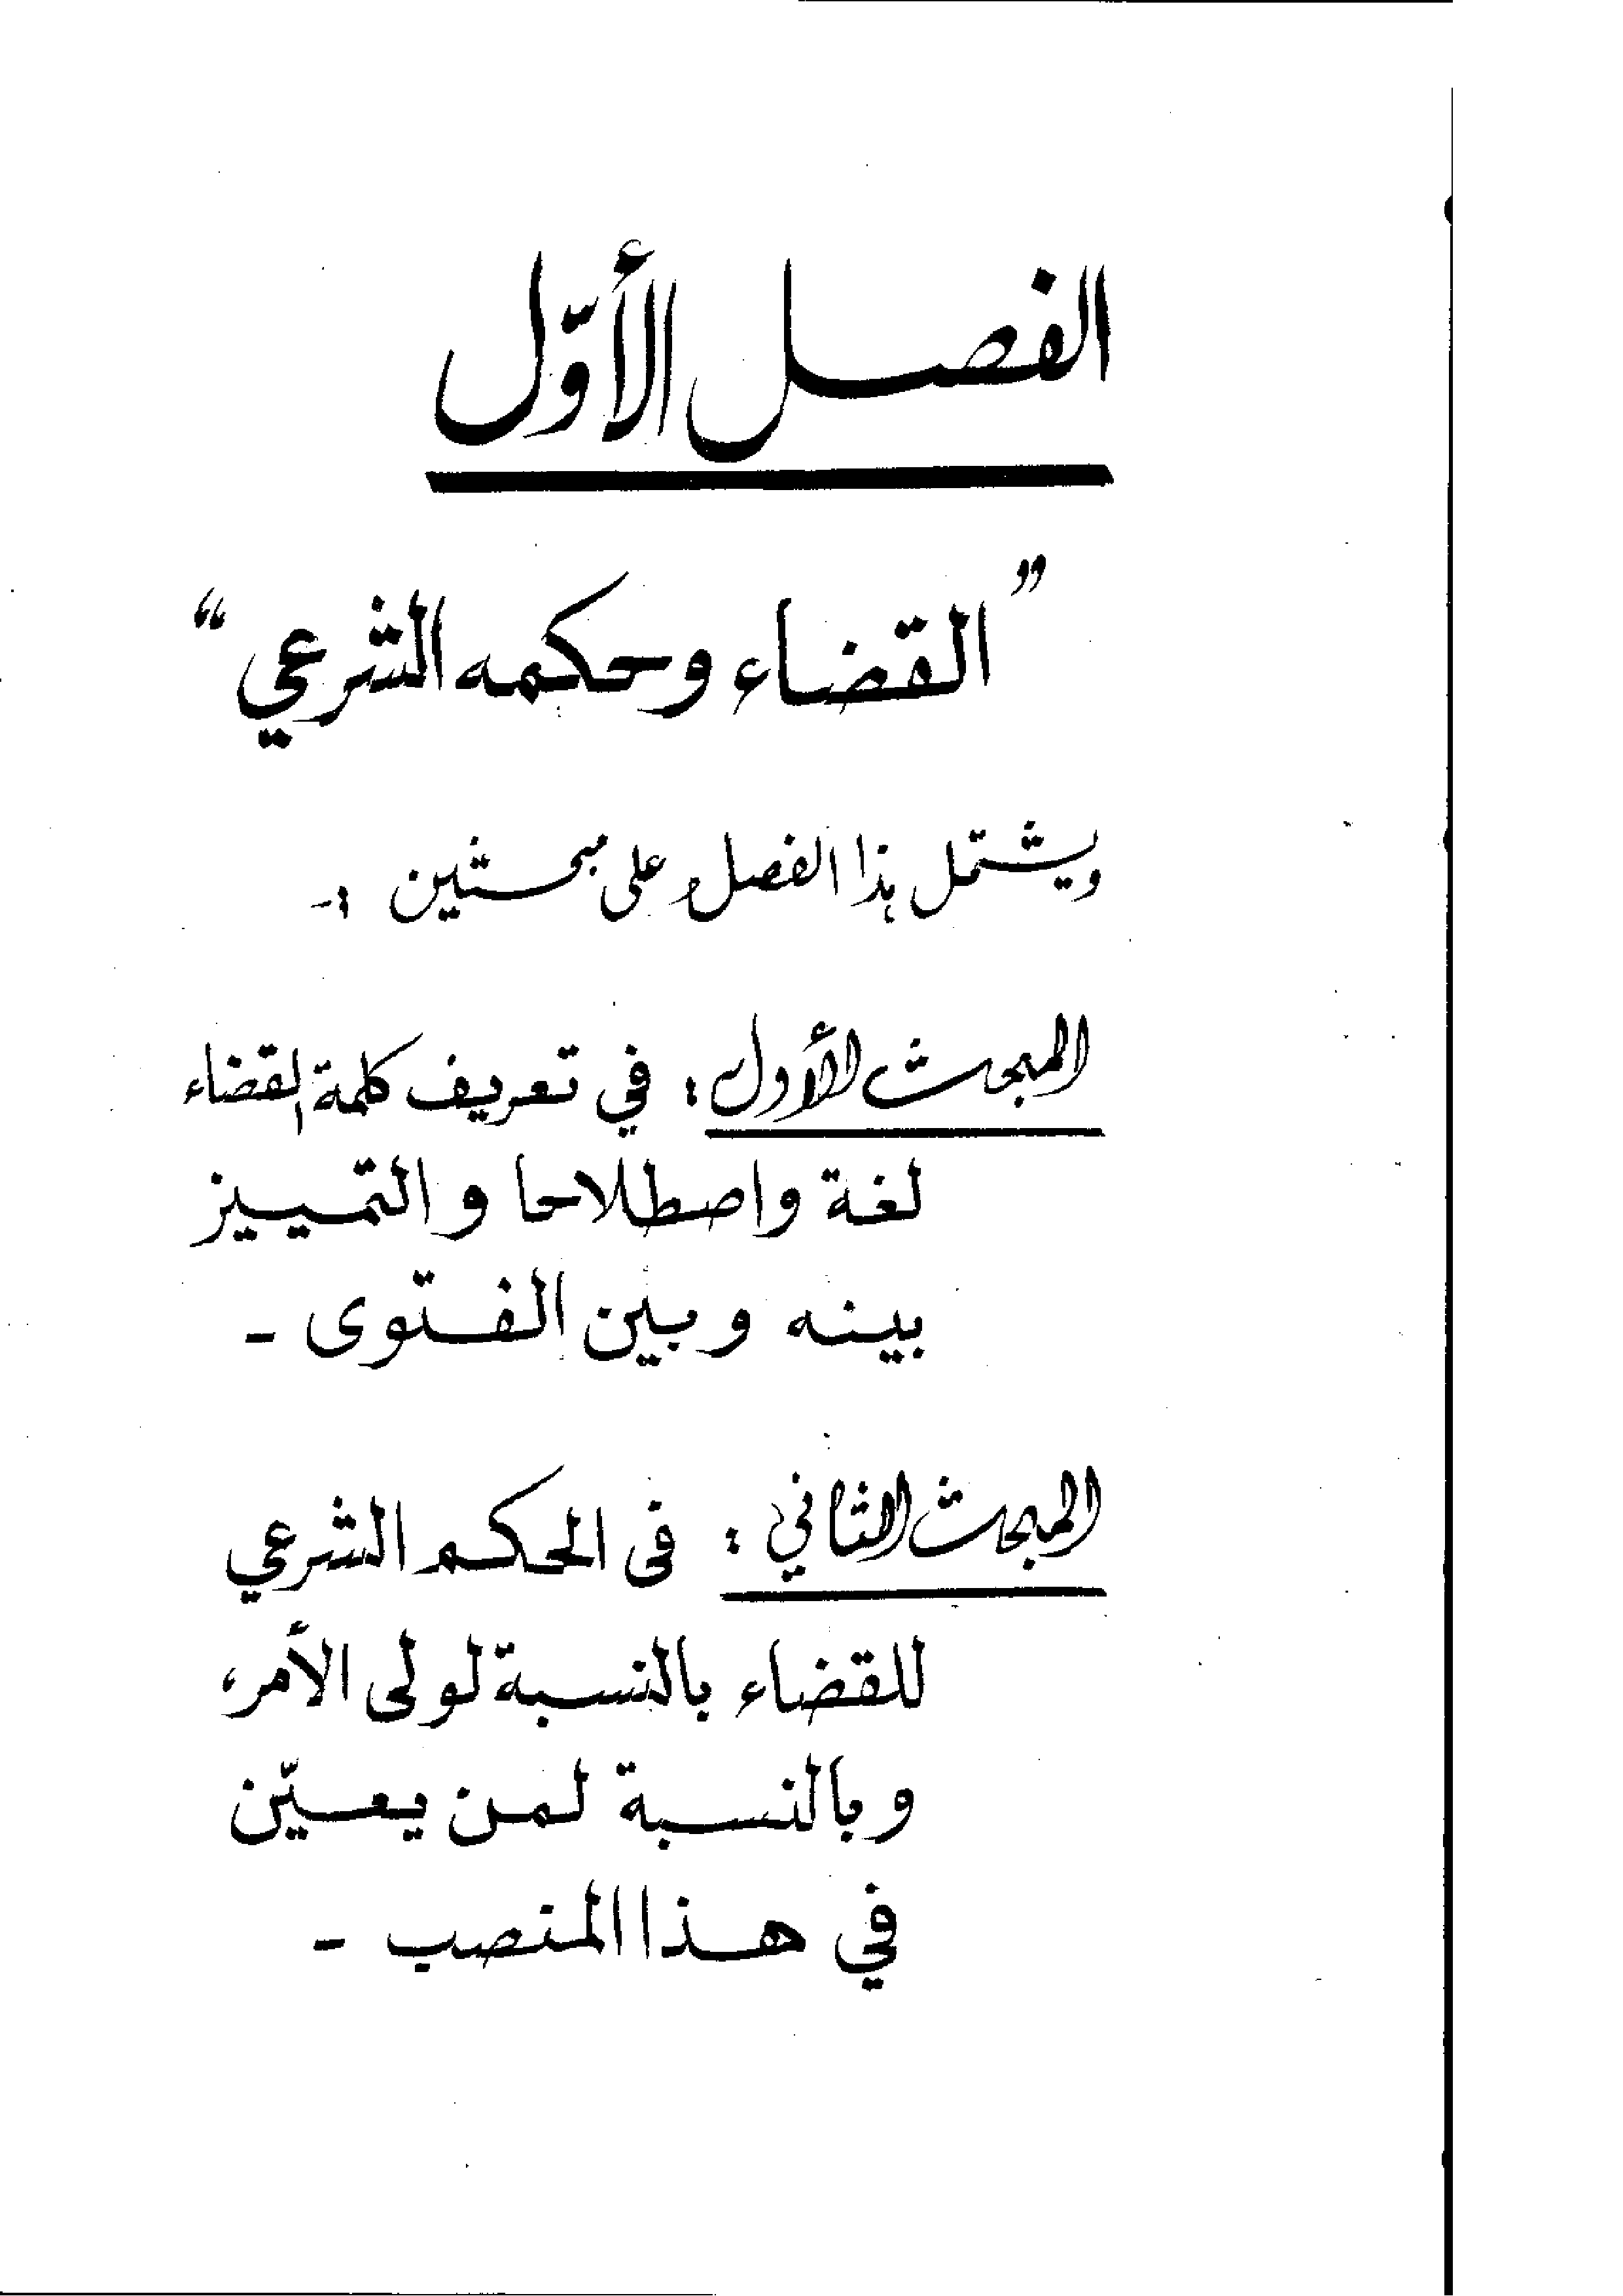 الفصل الأوّل
”القضاء وحكمه الشرعي“
ويشتمل هذا الفصل على مبحثين :-
المبحث الأول : في تعريف كلمة القضاء
لغة واصطلاحا والتمييز
بينه وبين الفتوى -
المبحث الثاني : فى الحكم الشرعي
للقضاء بالنسبة لولى الأمر،
وبالنسبة لمن يعيّن
في هذا المنصب -